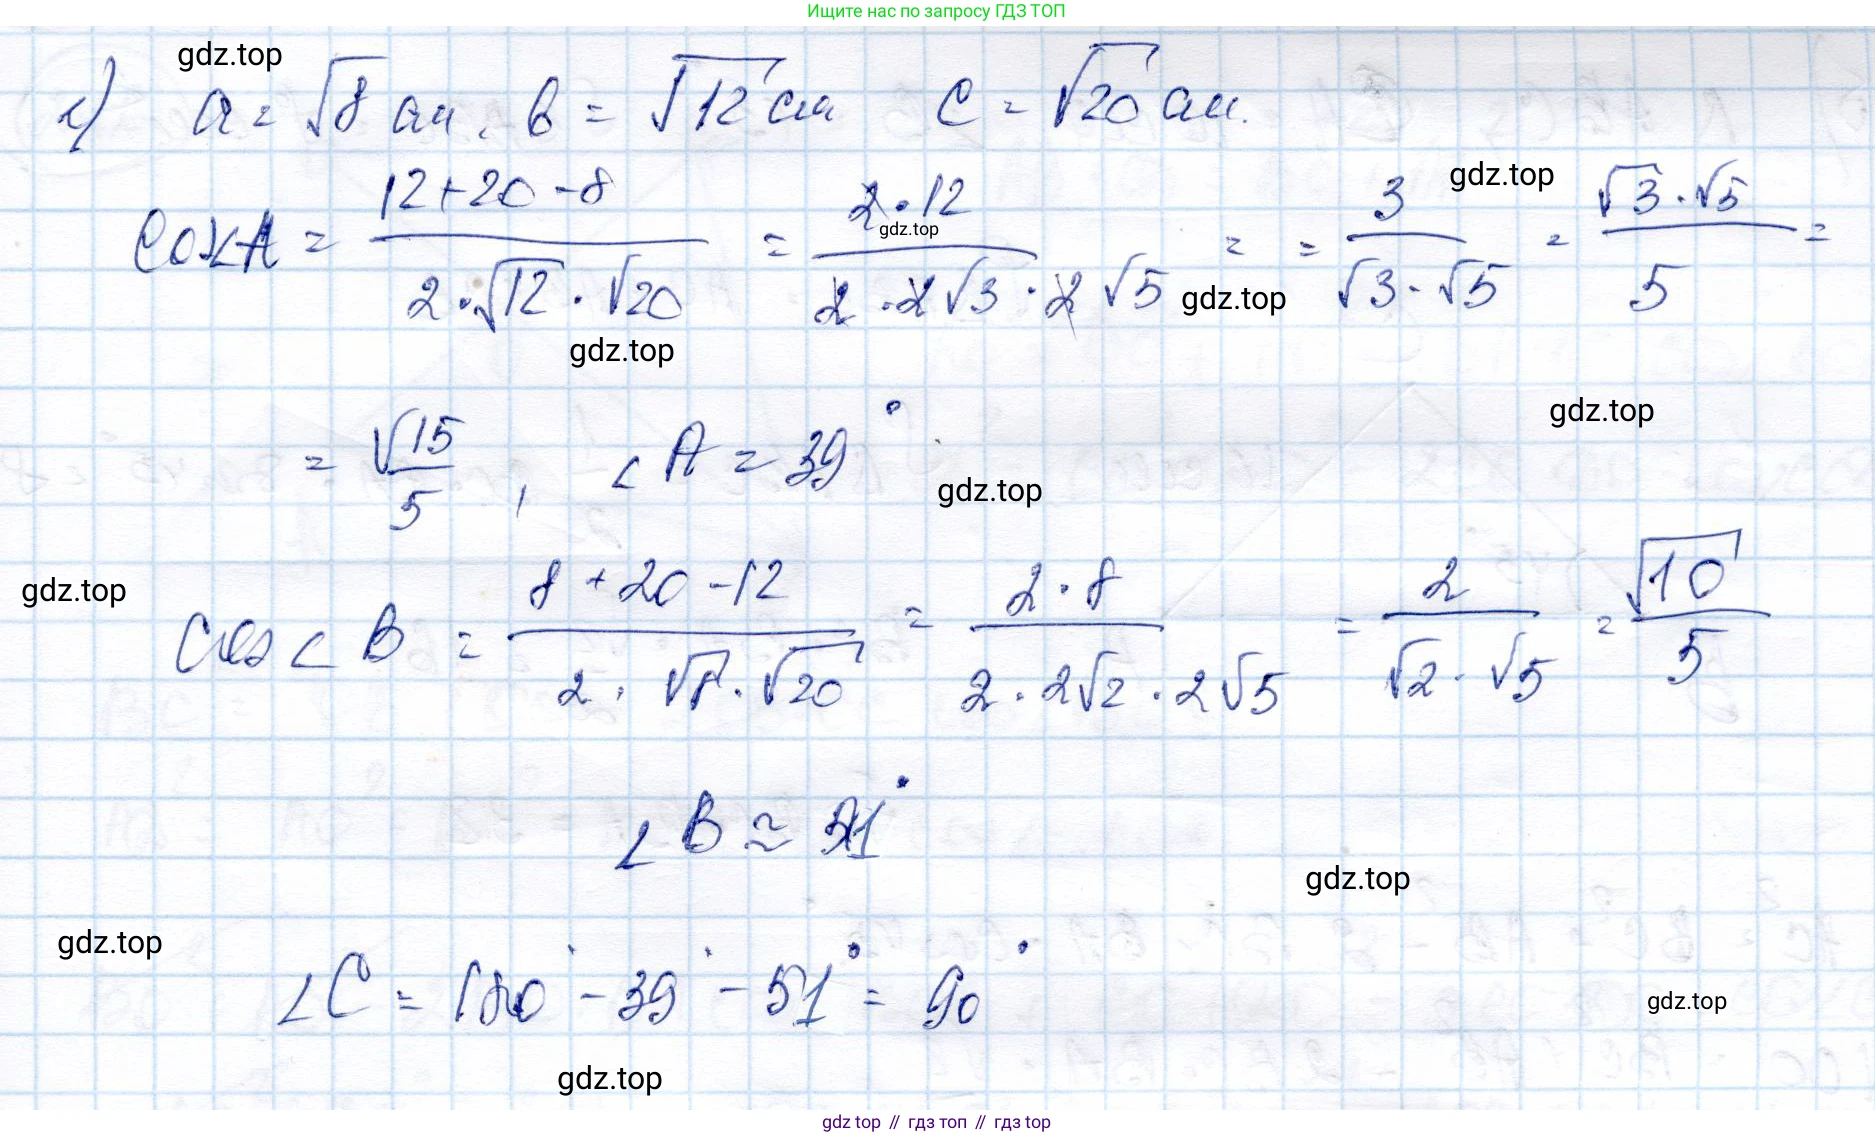 Ищите нас по запросу ГДЗ ТОП
gdz.top
г) a = √8 см, b = √12 см c = √20 см.
gdz.top
cos∠A = (12+20-8)/(2·√12·√20) = (2·12)/(2·2√3·2√5) = = 3/(√3·√5) = (√3·√5)/5 =
gdz.top
gdz.top
gdz.top
gdz.top
= √15/5, ∠A = 39°
gdz.top
gdz.top
cos∠B = (8+20-12)/(2·√8·√20) = (2·8)/(2·2√2·2√5) = 2/(√2·√5) = √10/5
∠B ≈ 51°
gdz.top
gdz.top
∠C = 180° - 39° - 51° = 90°
gdz.top
gdz.top
gdz top // гдз топ // гдз top